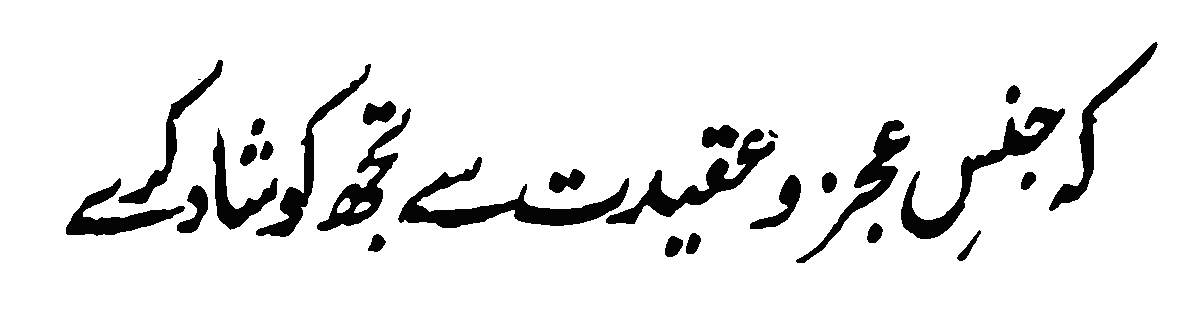 کہ جنسِ عجز و عقیدت سے تجھ کو شاد کرے